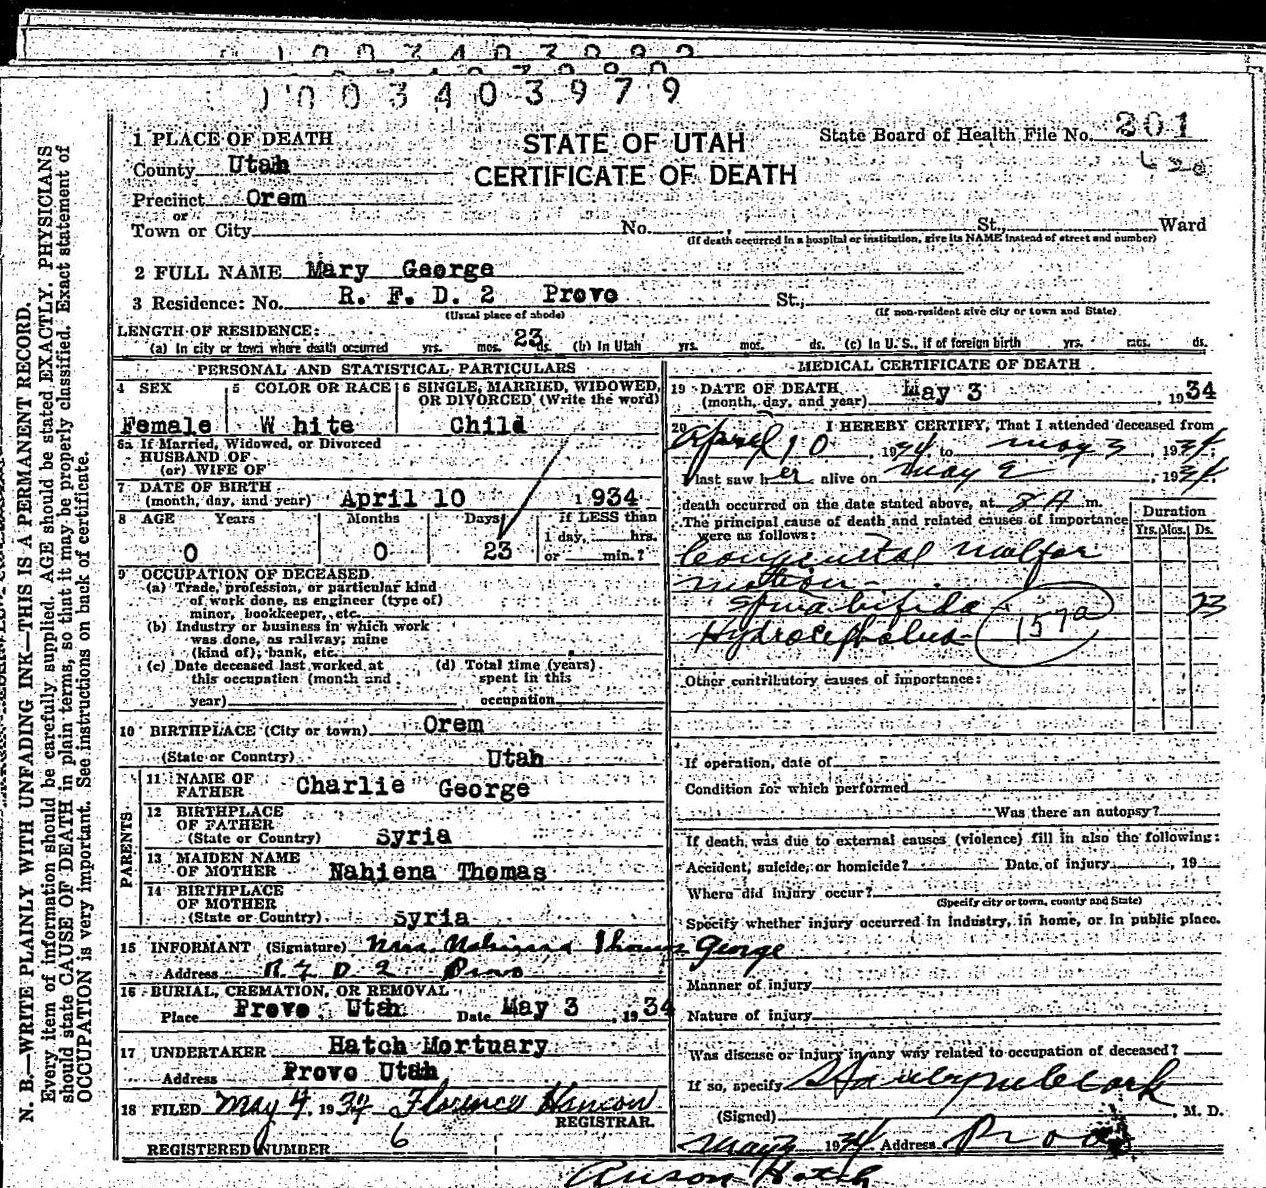 1003403979
STATE OF UTAH
CERTIFICATE OF DEATH
State Board of Health File No. 201
620
1 PLACE OF DEATH
County Utah
Precinct Orem
or
Town or City No. , St., Ward
(If death occurred in a hospital or institution, give its NAME instead of street and number)
2 FULL NAME Mary George
3 Residence: No. R. F. D. 2 Provo St.,
(Usual place of abode) (If non-resident give city or town and State)
LENGTH OF RESIDENCE:
(a) In city or town where death occurred yrs. mos. 23 ds. (b) In Utah yrs. mos. ds. (c) In U. S., if of foreign birth yrs. mos. ds.
PERSONAL AND STATISTICAL PARTICULARS
4 SEX
Female
5 COLOR OR RACE
White
6 SINGLE, MARRIED, WIDOWED,
OR DIVORCED (Write the word)
Child
6a If Married, Widowed, or Divorced
HUSBAND OF
(or) WIFE OF
7 DATE OF BIRTH
(month, day, and year) April 10 1934
8 AGE Years Months Days If LESS than
1 day, hrs.
0 0 23 or min.?
9 OCCUPATION OF DECEASED
(a) Trade, profession, or particular kind
of work done, as engineer (type of)
minor, bookkeeper, etc.
(b) Industry or business in which work
was done, as railway; mine
(kind of); bank, etc.
(c) Date deceased last worked at
this occupation (month and
year)
(d) Total time (years)
spent in this
occupation
10 BIRTHPLACE (City or town) Orem
(State or Country) Utah
PARENTS
11 NAME OF
FATHER Charlie George
12 BIRTHPLACE
OF FATHER
(State or Country) Syria
13 MAIDEN NAME
OF MOTHER Nahiena Thomas
14 BIRTHPLACE
OF MOTHER
(State or Country) Syria
15 INFORMANT (Signature) Mrs. Thomas George
Address R F D 2 Provo
16 BURIAL, CREMATION, OR REMOVAL
Place Provo Utah Date May 3, 1934
17 UNDERTAKER Hatch Mortuary
Address Provo Utah
18 FILED May 4, 1934 Florence Hanson
REGISTRAR.
REGISTERED NUMBER 6
MEDICAL CERTIFICATE OF DEATH
19 DATE OF DEATH
(month, day, and year) May 3, 1934
20 I HEREBY CERTIFY, That I attended deceased from
April 10, 1934 to May 3, 1934;
I last saw her alive on May 2, 1934;
death occurred on the date stated above, at 3 A m.
The principal cause of death and related causes of importance
were as follows:
Duration
Yrs. Mos. Ds.
Congenital malfor
mation
Spina bifida 23
Hydrocephalus 157a
Other contributory causes of importance:
If operation, date of
Condition for which performed
Was there an autopsy?
If death was due to external causes (violence) fill in also the following:
Accident, suicide, or homicide? Date of injury , 19
Where did injury occur?
(Specify city or town, county and State)
Specify whether injury occurred in industry, in home, or in public place.
Manner of injury
Nature of injury
Was disease or injury in any way related to occupation of deceased?
If so, specify
(Signed) , M. D.
May 3 1934 Address Provo
Anson Hatch
N. B.—WRITE PLAINLY WITH UNFADING INK—THIS IS A PERMANENT RECORD.
Every item of information should be carefully supplied. AGE should be stated EXACTLY. PHYSICIANS
should state CAUSE OF DEATH in plain terms, so that it may be properly classified. Exact statement of
OCCUPATION is very important. See instructions on back of certificate.